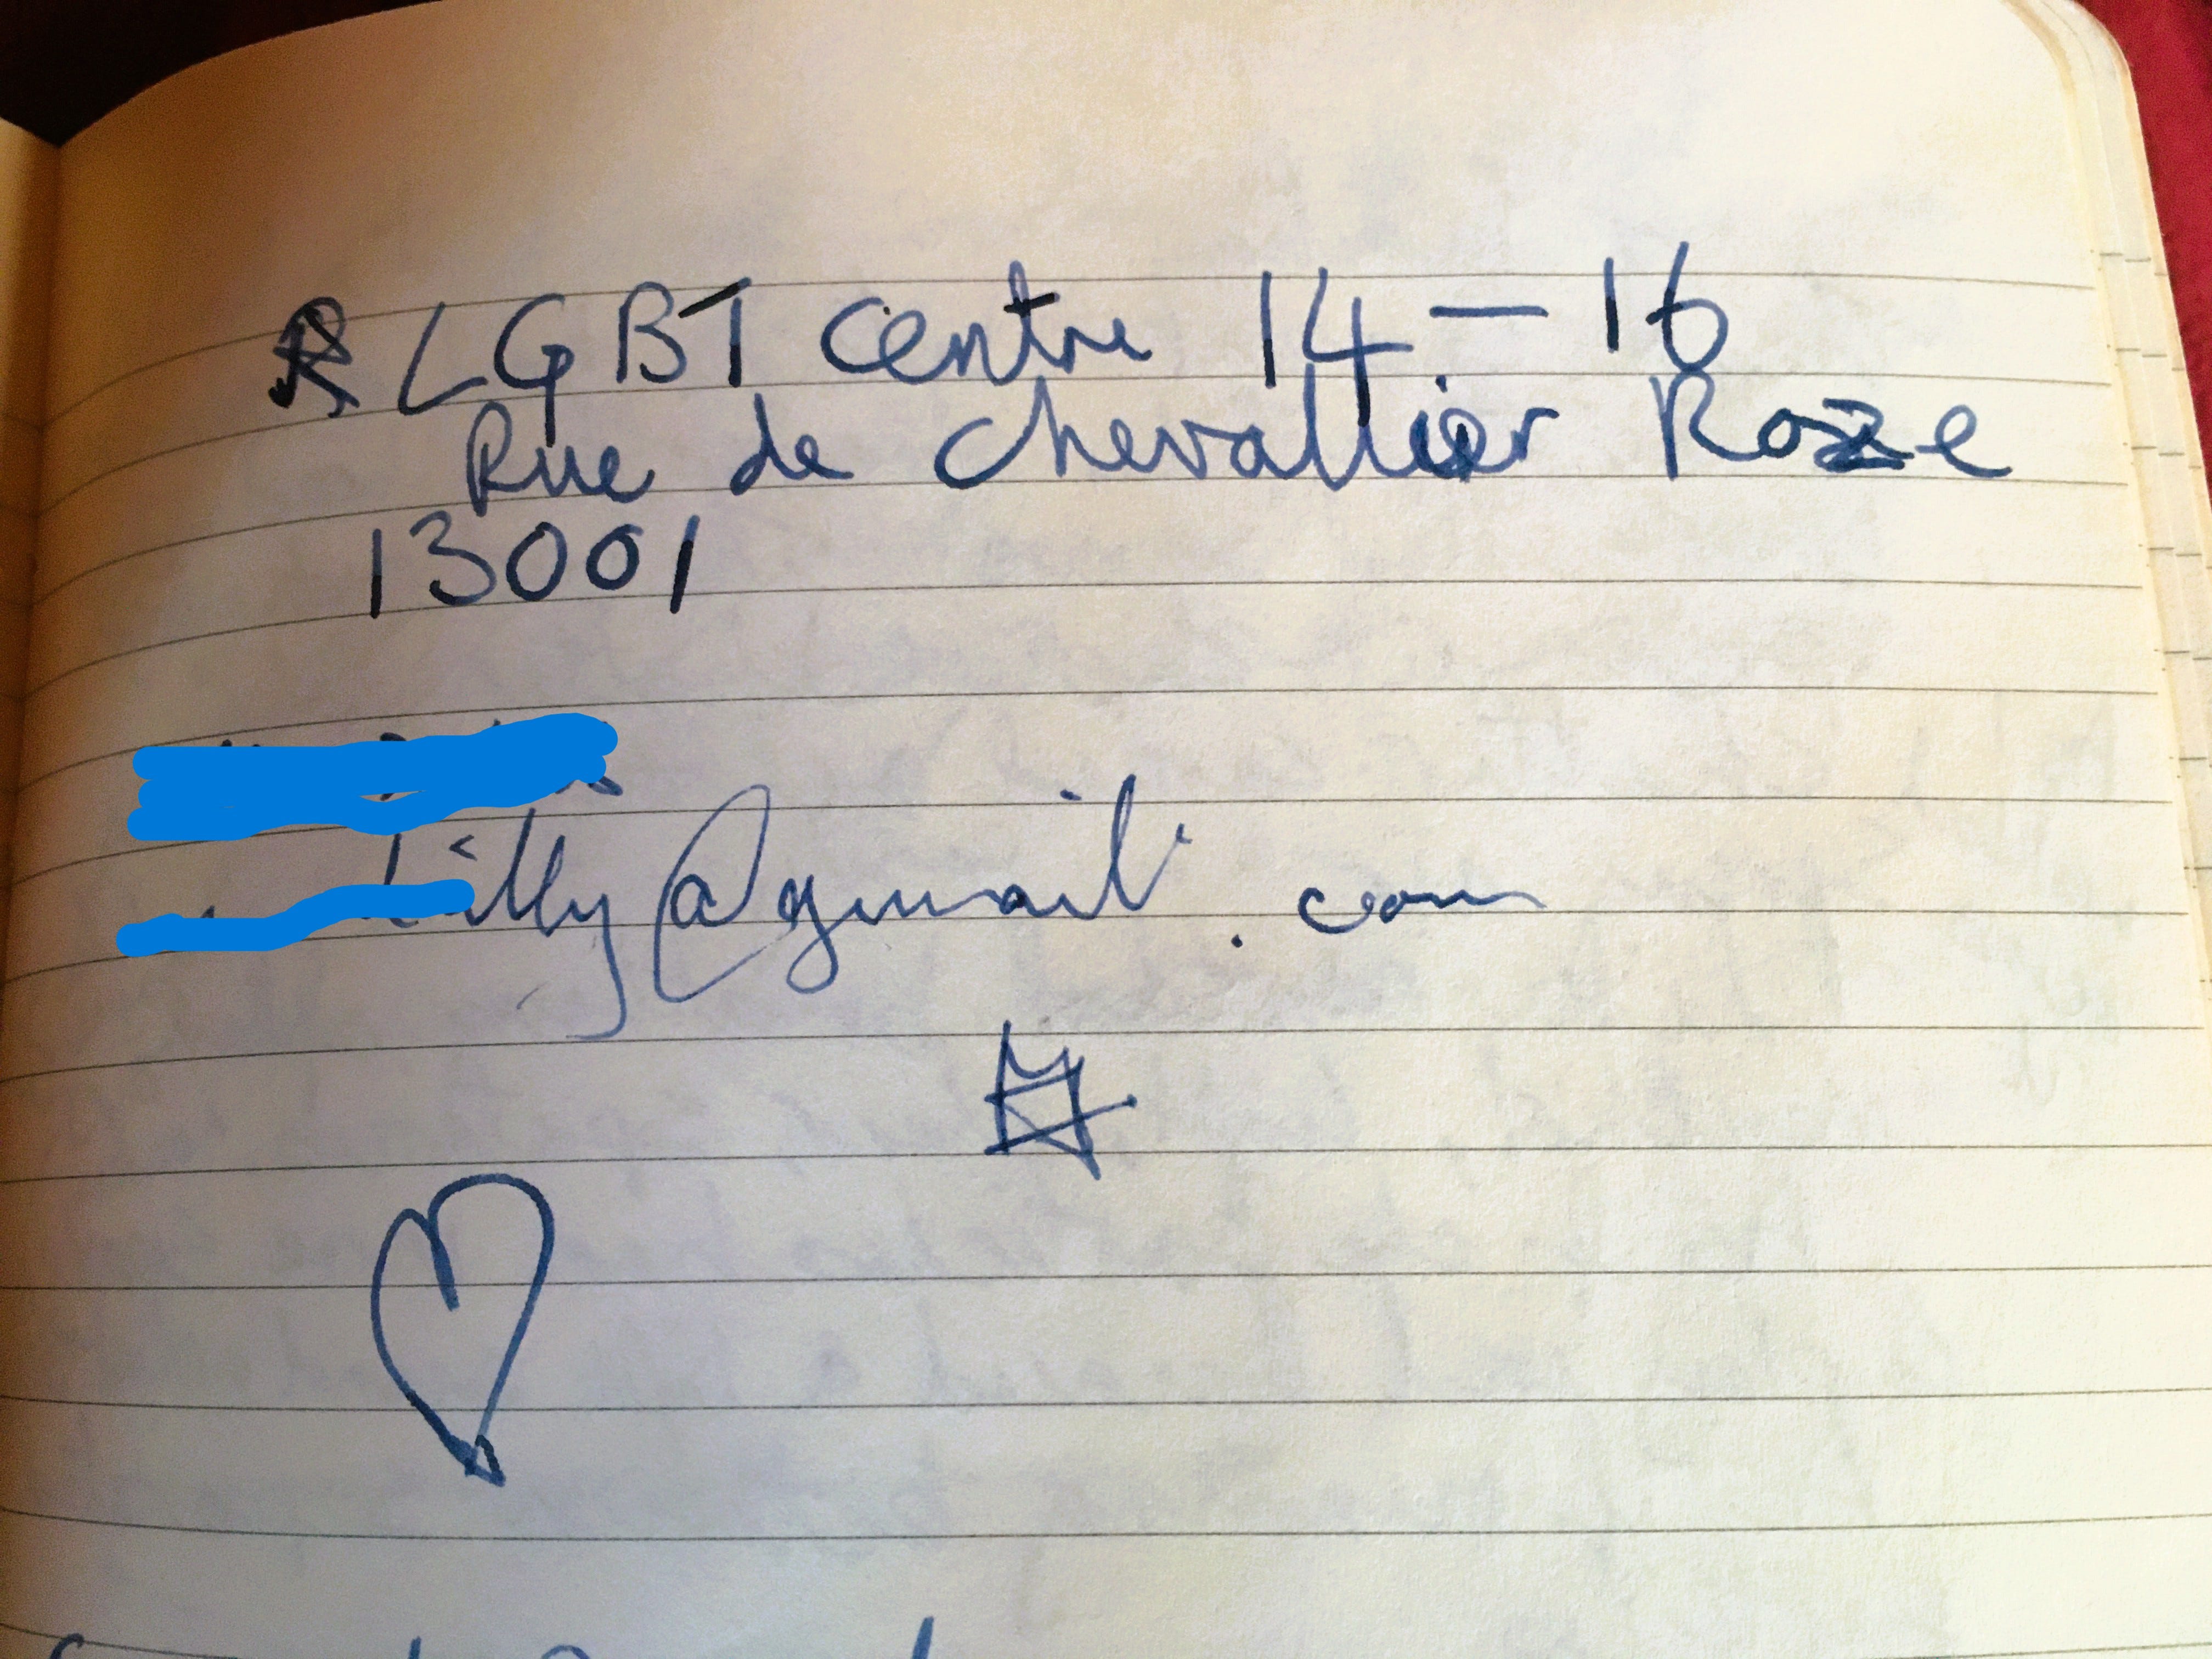 LGBT Centre 14-16
Rue de Chevallier Roze
13001
@gmail.com